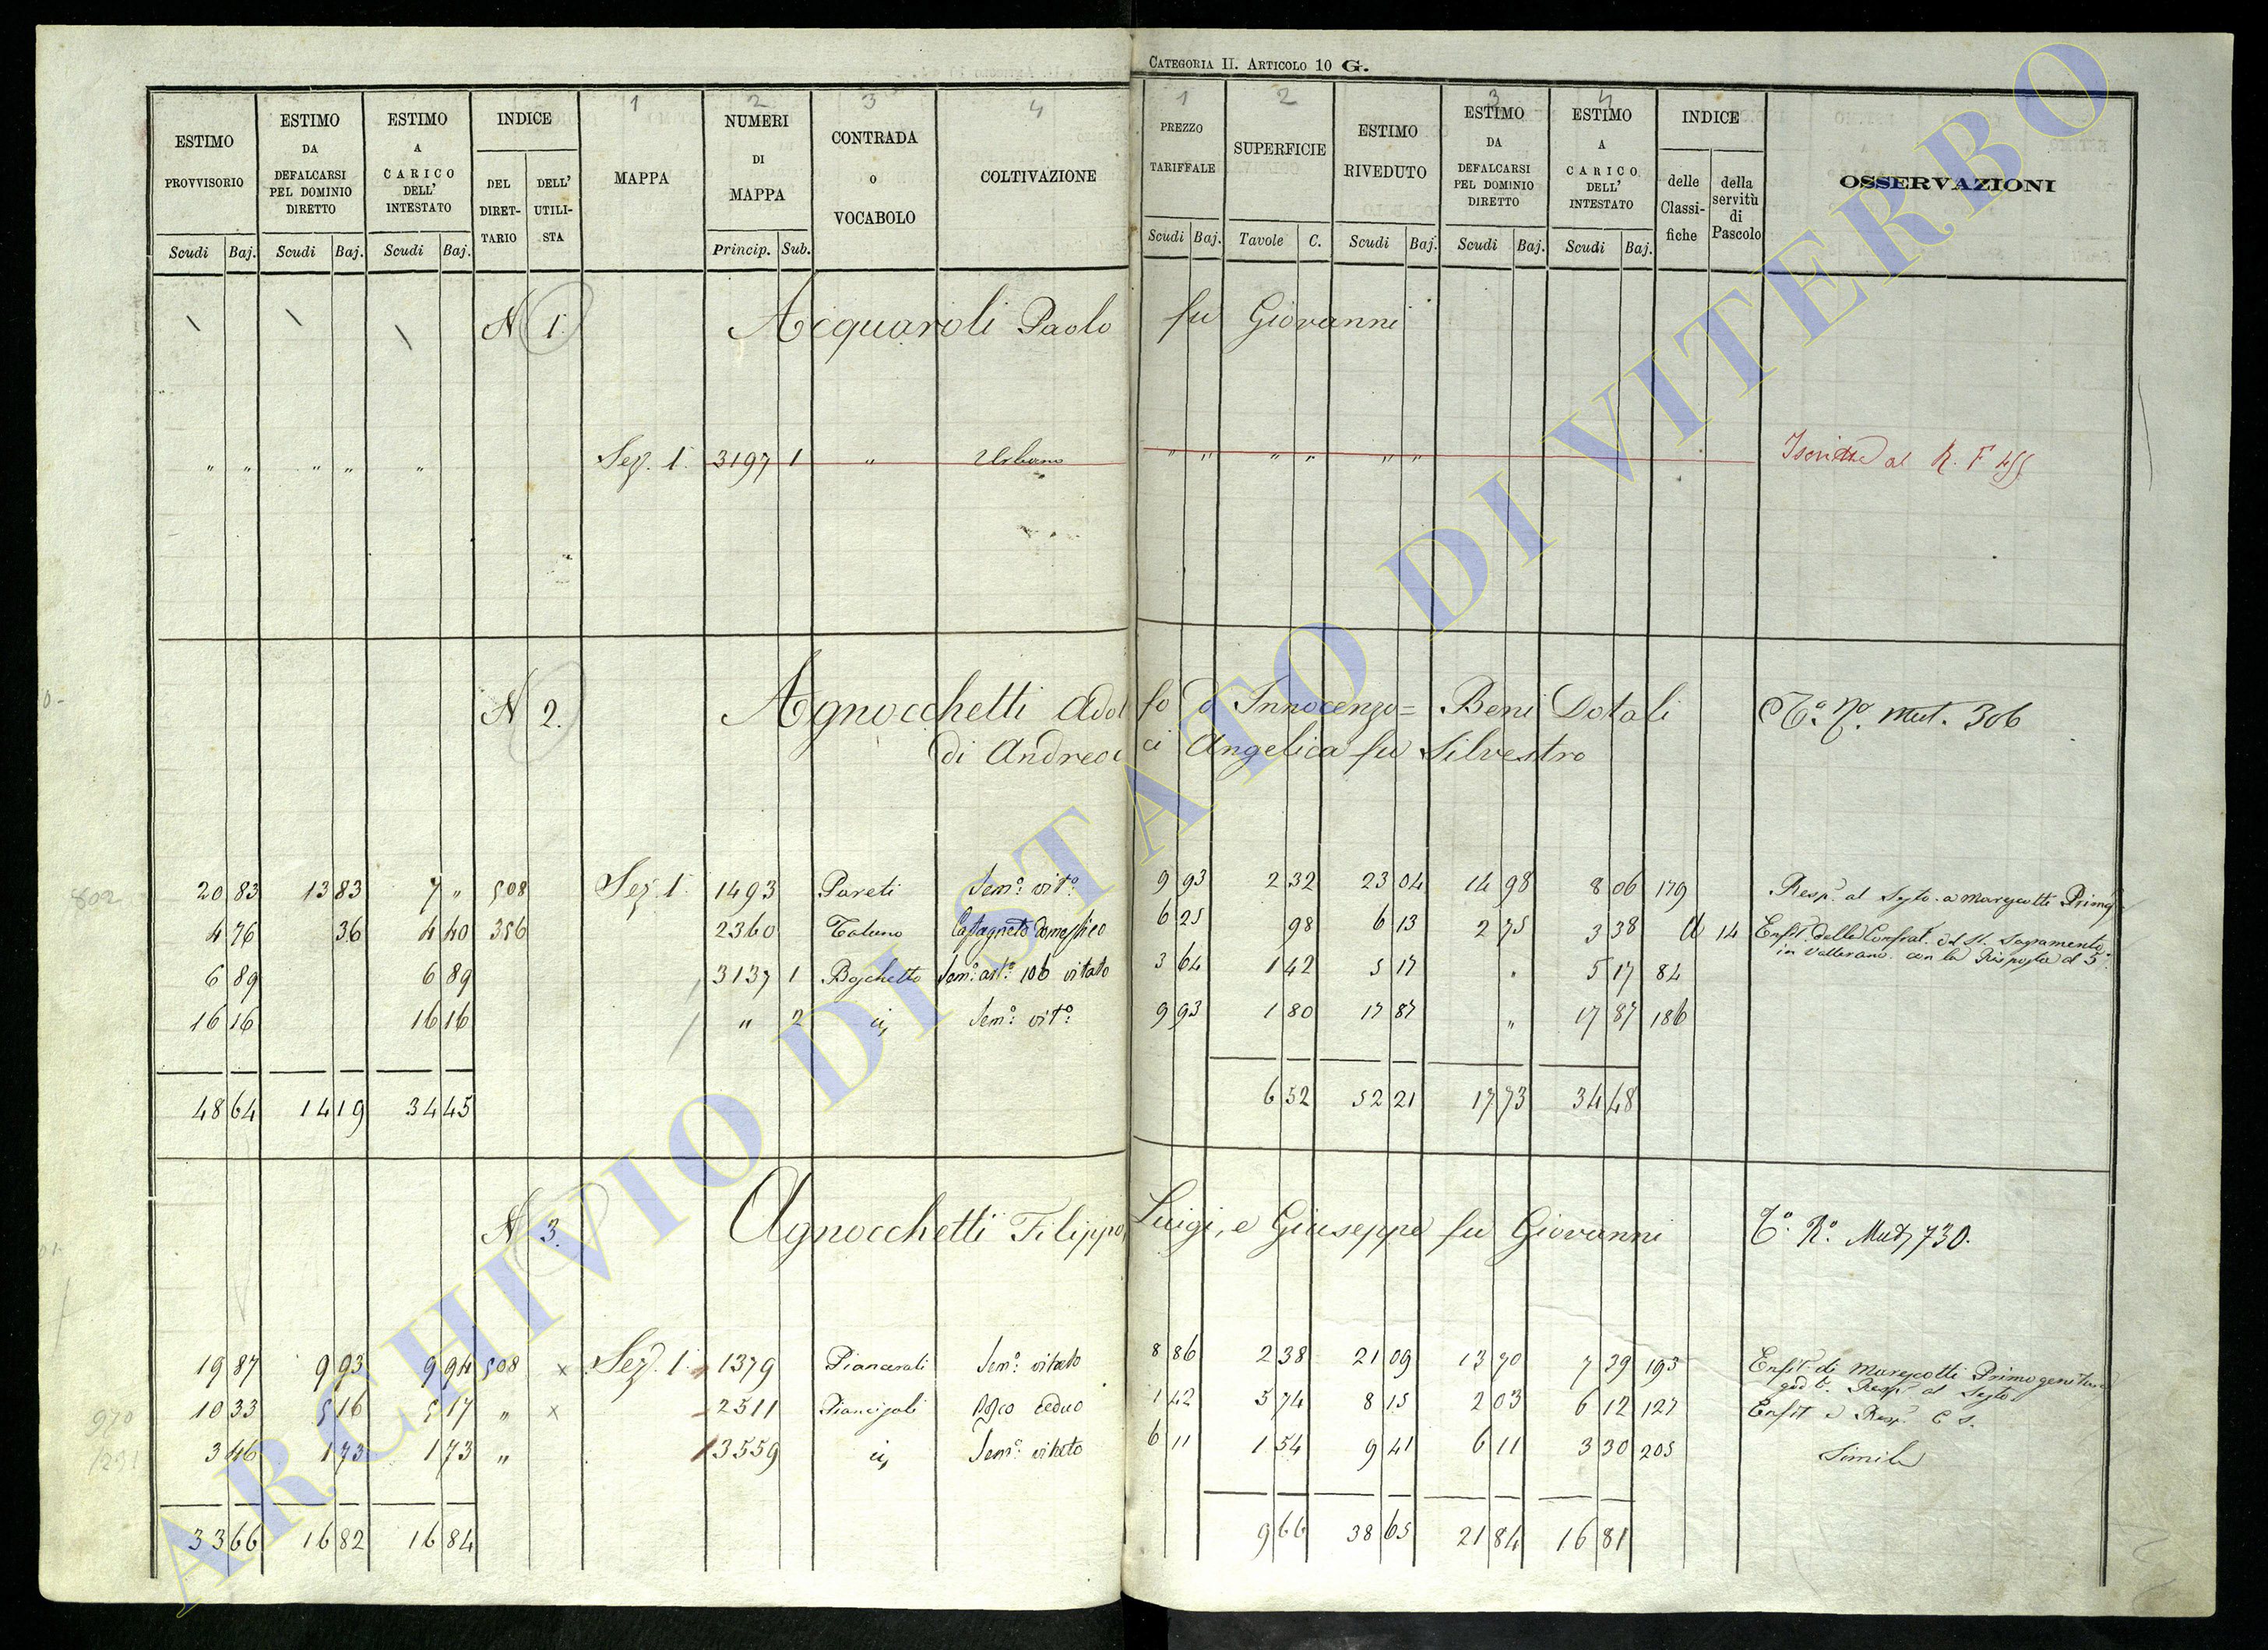 CATEGORIA II. ARTICOLO 10 G.
ESTIMO PROVVISORIO Scudi Baj.
ESTIMO DA DEFALCARSI PEL DOMINIO DIRETTO Scudi Baj.
ESTIMO A CARICO DELL' INTESTATO Scudi Baj.
INDICE DEL DIRETTARIO DELL' UTILISTA
1 MAPPA
2 NUMERI DI MAPPA Princip. Sub.
3 CONTRADA O VOCABOLO
4 COLTIVAZIONE
1 PREZZO TARIFFALE Scudi Baj.
2 SUPERFICIE Tavole C.
ESTIMO RIVEDUTO Scudi Baj.
3 ESTIMO DA DEFALCARSI PEL DOMINIO DIRETTO Scudi Baj.
4 ESTIMO A CARICO DELL' INTESTATO Scudi Baj.
INDICE delle Classifiche della servitù di Pascolo
OSSERVAZIONI
N 1. Acquaroli Paolo fu Giovanni
" " " " " Sez. 1. 3197 1 " Urbano " " " " " " al R. F
N 2. Agnocchetti Adolfo d Innocenzo = Beni Dotali Mut. 306
di Andreoci Angelica fu Silvestro
20 83 13 83 7 " 508 Sez. 1. 1493 Pareti Sem.o vit.o 9 93 2 32 23 04 14 98 8 06 179 Resp. al Sesto a Marescotti Primog
4 76 36 4 40 356 2360 Castagneto domestico 6 25 98 6 13 2 75 3 38 14 Enfit. della Confrat. del SS. Sagramento
in Vallerano con la Risposta al 5.
6 89 6 89 3137 1 Boschetto Sem.o vitato 3 64 1 42 5 17 " 5 17 84
16 16 16 16 " 2 Sem.o vit.o 9 93 1 80 17 87 " 17 87 186
48 64 14 19 34 45 6 52 52 21 17 73 34 48
N 3. Agnocchetti Filippo, Luigi, e Giuseppe fu Giovanni Mut. 730.
19 87 9 93 9 94 508 x Sez. 1. 1379 Sem.o vitato 8 86 2 38 21 09 13 70 7 39 193 Enfit. di Marescotti Primogenitura
Resp. al Sesto
10 33 5 16 5 17 " x 2511 Bosco Ceduo 1 42 5 74 8 15 2 03 6 12 127 Enfit e Resp. C. S.
3 46 1 73 1 73 " 3559 Sem.o vitato 6 11 1 54 9 41 6 11 3 30 205 Simile
33 66 16 82 16 84 9 66 38 65 21 84 16 81
802
970
ARCHIVIO DI STATO DI VITERBO